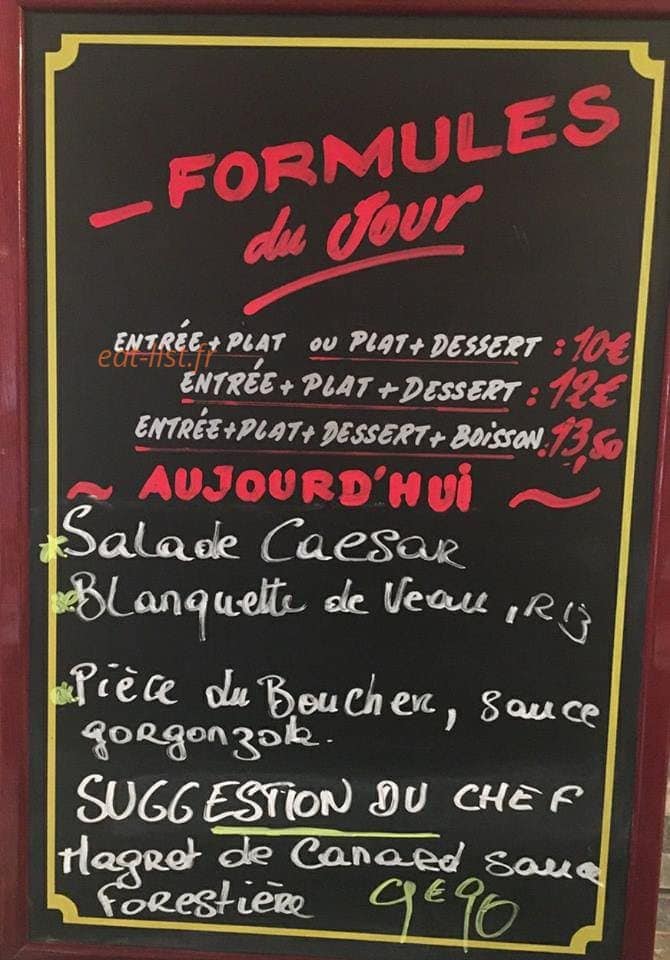 FORMULES
du Jour
ENTRÉE + PLAT OU PLAT + DESSERT : 10€
eat-list.fr
ENTRÉE + PLAT + DESSERT : 12€
ENTRÉE + PLAT + DESSERT + BOISSON. 13,50
~ AUJOURD'HUI ~
* Salade CAESAR
Blanquette de Veau, RIZ
Pièce du Boucher, sauce
gorgonzola.
SUGGESTION DU CHEF
Magret de Canard sauce
Forestière 9€90